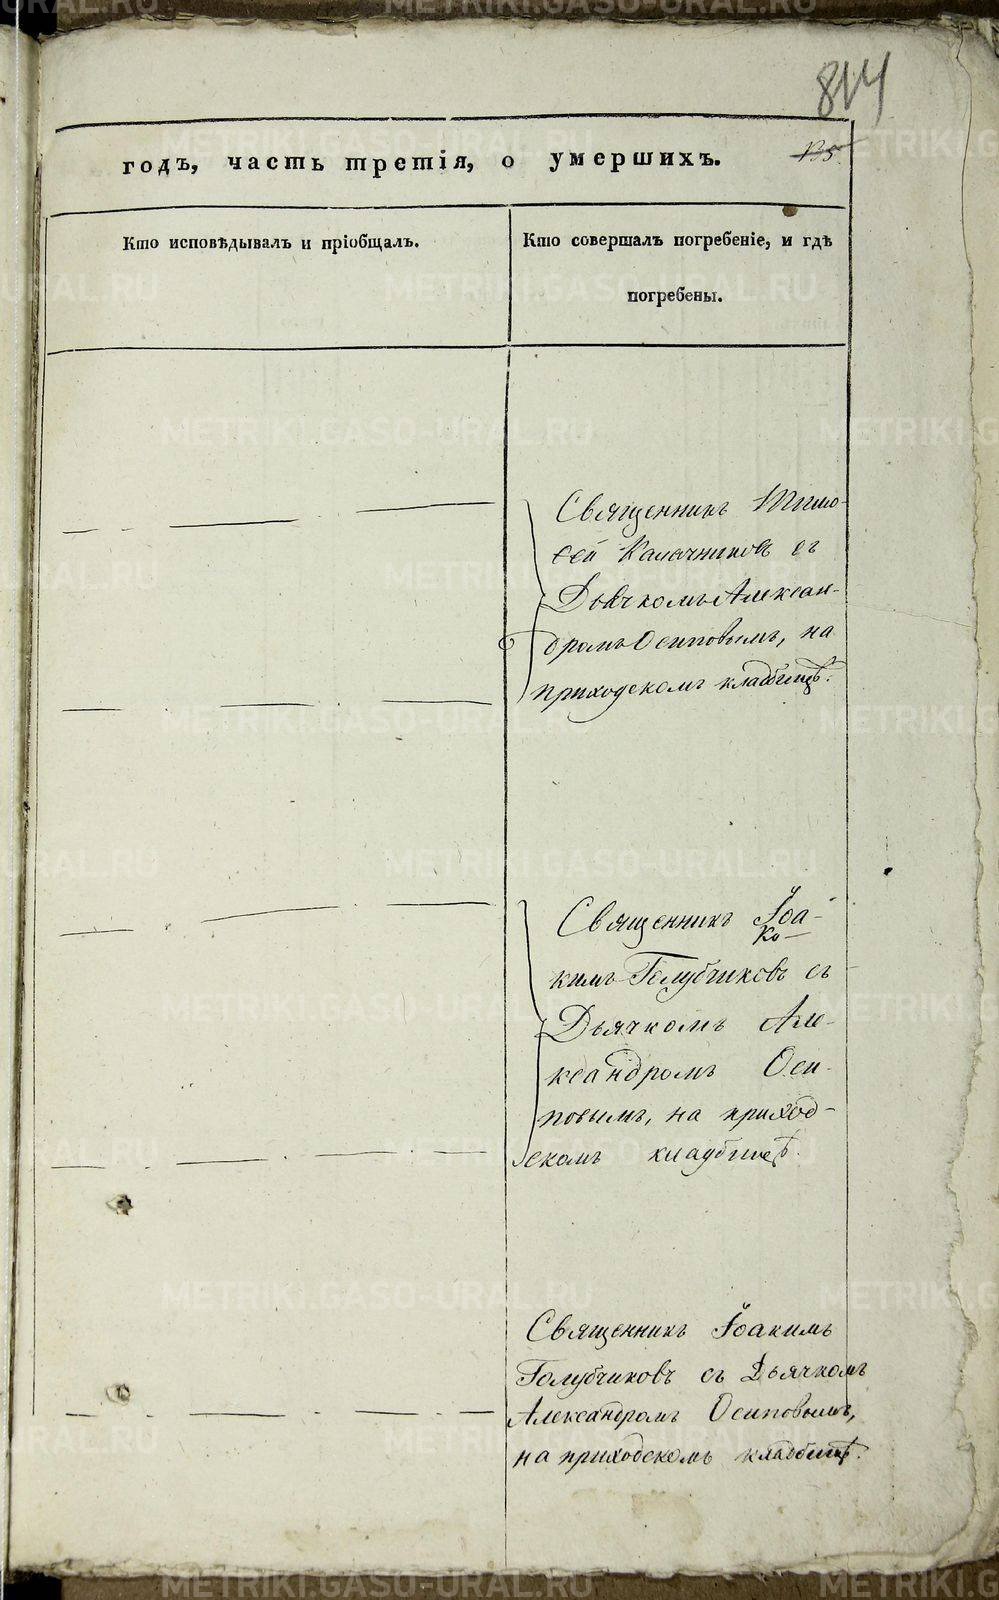 814
годъ, часть третія, о умершихъ.
Кто исповѣдывалъ и пріобщалъ.
Кто совершалъ погребеніе, и гдѣ
погребены.
Священникъ Тимо-
ѳей Калачниковъ съ
Дьячкомъ Алексан-
дромъ Осиповымъ, на
приходскомъ кладбищѣ.
Священникъ Іоа-
кимъ Голубчиковъ съ
Дьячкомъ Але-
ксандромъ Оси-
повымъ, на приход-
скомъ кладбищѣ.
Священникъ Іоакимъ
Голубчиковъ съ Дьячкомъ
Александромъ Осиповымъ,
на приходскомъ кладбищѣ.
METRIKI.GASO-URAL.RU